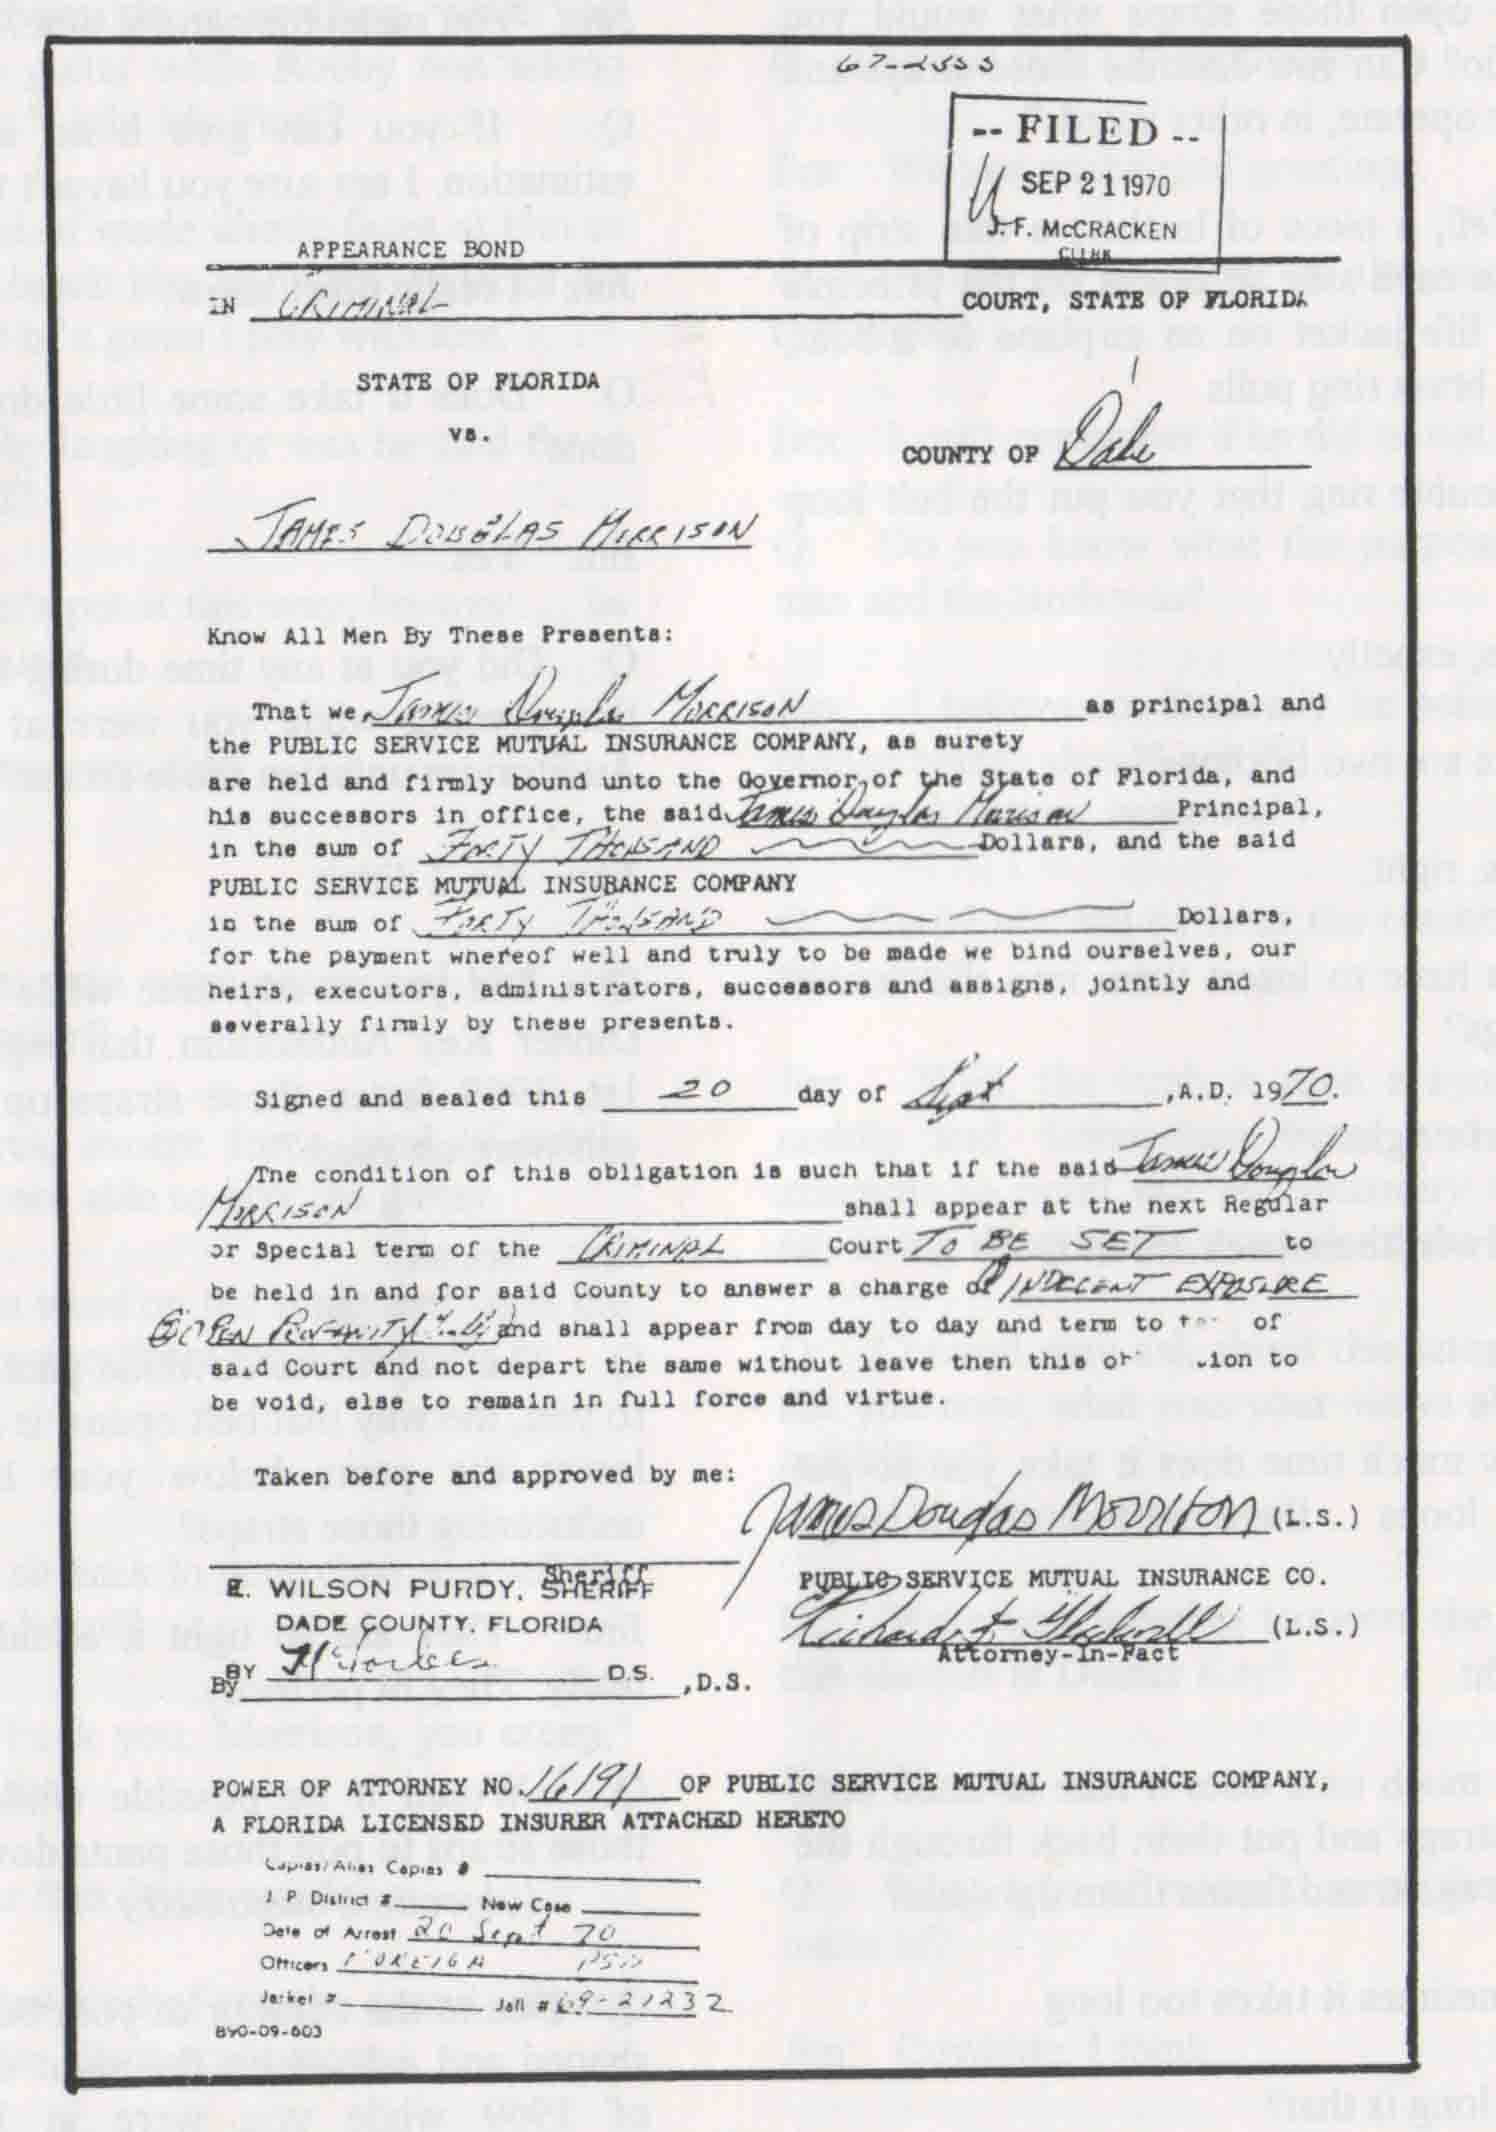 67-2555
-- FILED --
SEP 21 1970
J. F. McCRACKEN
CLERK
APPEARANCE BOND
IN CRIMINAL COURT, STATE OF FLORIDA
STATE OF FLORIDA
vs.
COUNTY OF Dade
JAMES DOUGLAS MORRISON
Know All Men By These Presents:
That we, James Douglas MORRISON as principal and
the PUBLIC SERVICE MUTUAL INSURANCE COMPANY, as surety
are held and firmly bound unto the Governor of the State of Florida, and
his successors in office, the said James Douglas Morrison Principal,
in the sum of FORTY THOUSAND Dollars, and the said
PUBLIC SERVICE MUTUAL INSURANCE COMPANY
in the sum of FORTY THOUSAND Dollars,
for the payment whereof well and truly to be made we bind ourselves, our
heirs, executors, administrators, successors and assigns, jointly and
severally firmly by these presents.
Signed and sealed this 20 day of Sept ,A.D. 1970.
The condition of this obligation is such that if the said James Douglas
MORRISON shall appear at the next Regular
or Special term of the CRIMINAL Court TO BE SET to
be held in and for said County to answer a charge of ① INDECENT EXPOSURE
② OPEN PROFANITY and shall appear from day to day and term to of
said Court and not depart the same without leave then this to
be void, else to remain in full force and virtue.
Taken before and approved by me:
James Douglas Morrison (L.S.)
Sheriff
E. WILSON PURDY, SHERIFF
DADE COUNTY, FLORIDA
PUBLIC SERVICE MUTUAL INSURANCE CO.
(L.S.)
Attorney-In-Fact
BY D.S.
By ,D.S.
POWER OF ATTORNEY NO. 16191 OF PUBLIC SERVICE MUTUAL INSURANCE COMPANY,
A FLORIDA LICENSED INSURER ATTACHED HERETO
Capias/Alias Capias #
J. P. District # New Case
Date of Arrest 20 Sept 70
Officers FOREIGN PSD
Jacket # Jail # 69-21232
890-09-603